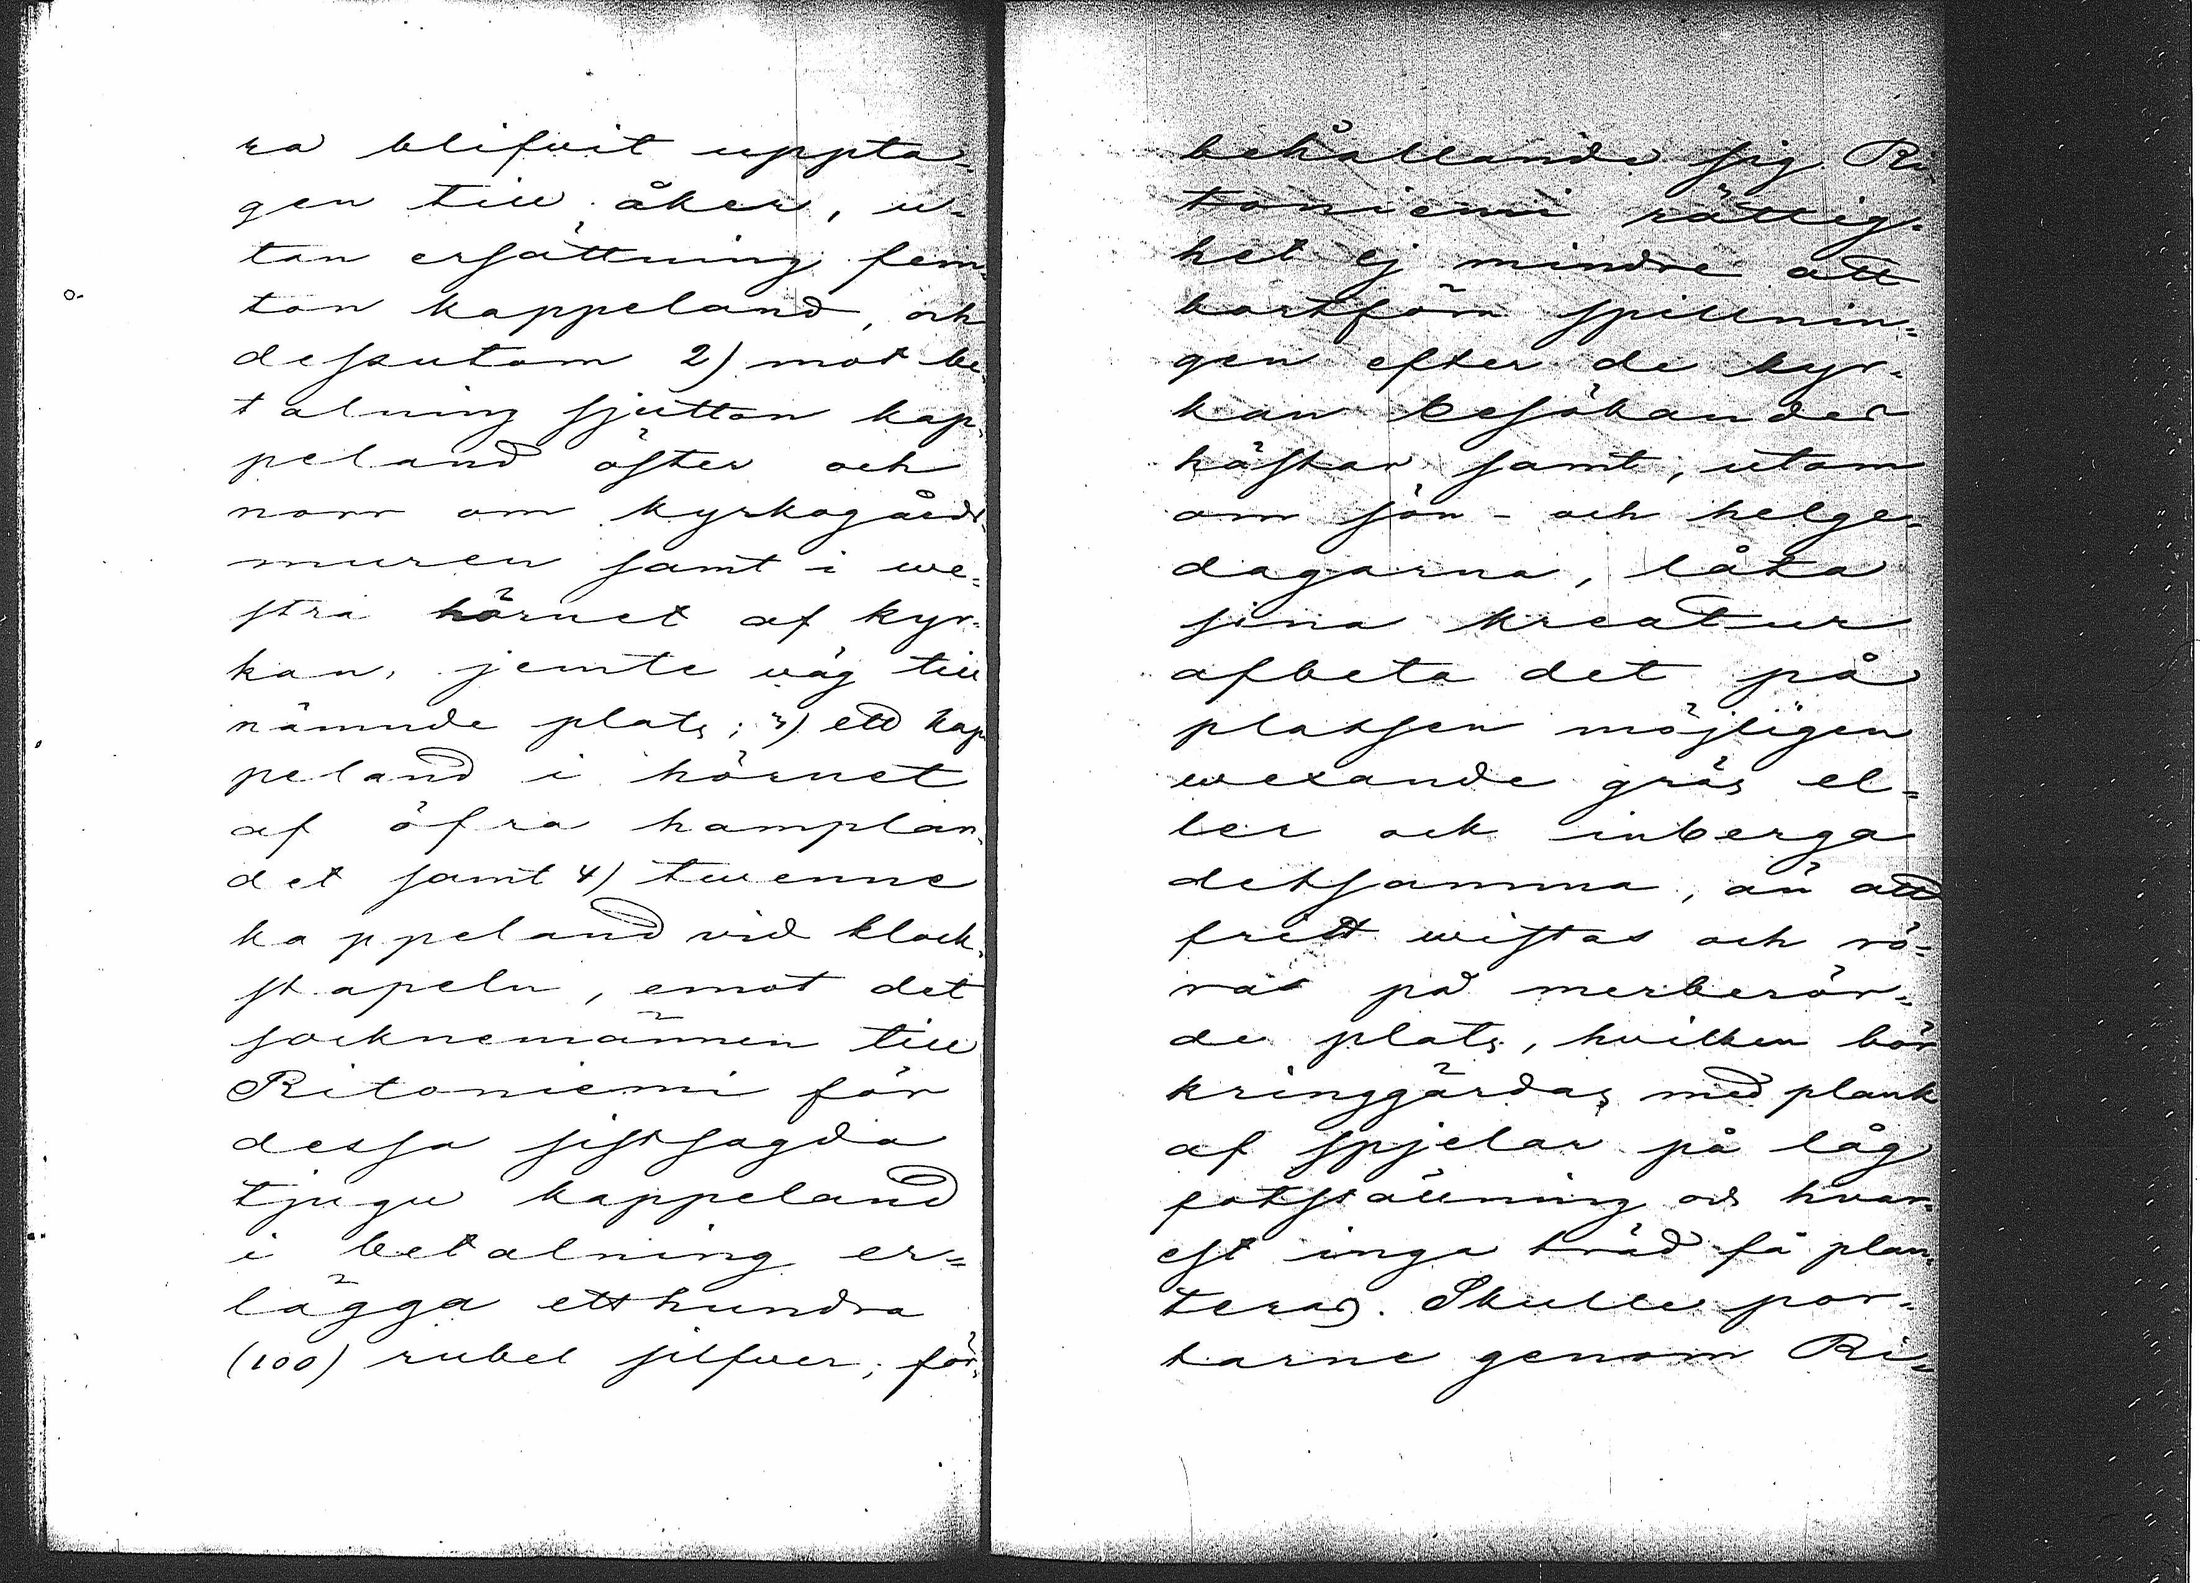 ra blifvit uppta-
gen till åker, u-
tan ersättning fem-
ton kappeland, och
dessutom 2) mot be-
talning sjutton kap-
peland öster och
norr om kyrkogårds-
muren samt i we-
stra hörnet af kyr-
kan, jemte väg till
nämnde plats; 3) ett kap-
peland i hörnet
af öfra hamplan-
det samt 4) twenne
kappeland vid klock-
stapeln, emot det
socknemännen till
Ritoniemi för
dessa sistsagda
tjugu kappeland
i betalning er-
lägga etthundra
(100) rubel silfver; för-
behållande sig Ri-
toniemi rättig-
het ej mindre att
bortföra spillnin-
gen efter de kyr-
kan besökandes
hästar samt, utom
om sön- och helge-
dagarna, låta
sina kreatur
afbeta det på
platsen möjligen
wexande gräs el-
ler ock inberga
detsamma, än att
fritt wistas och rö-
ras på merberör-
de plats, hvilken bör
kringgärdas med plank
af spjelar på låg
fotställning och hvar-
est inga träd få plan-
teras. Skulle por-
tarne genom Ri-